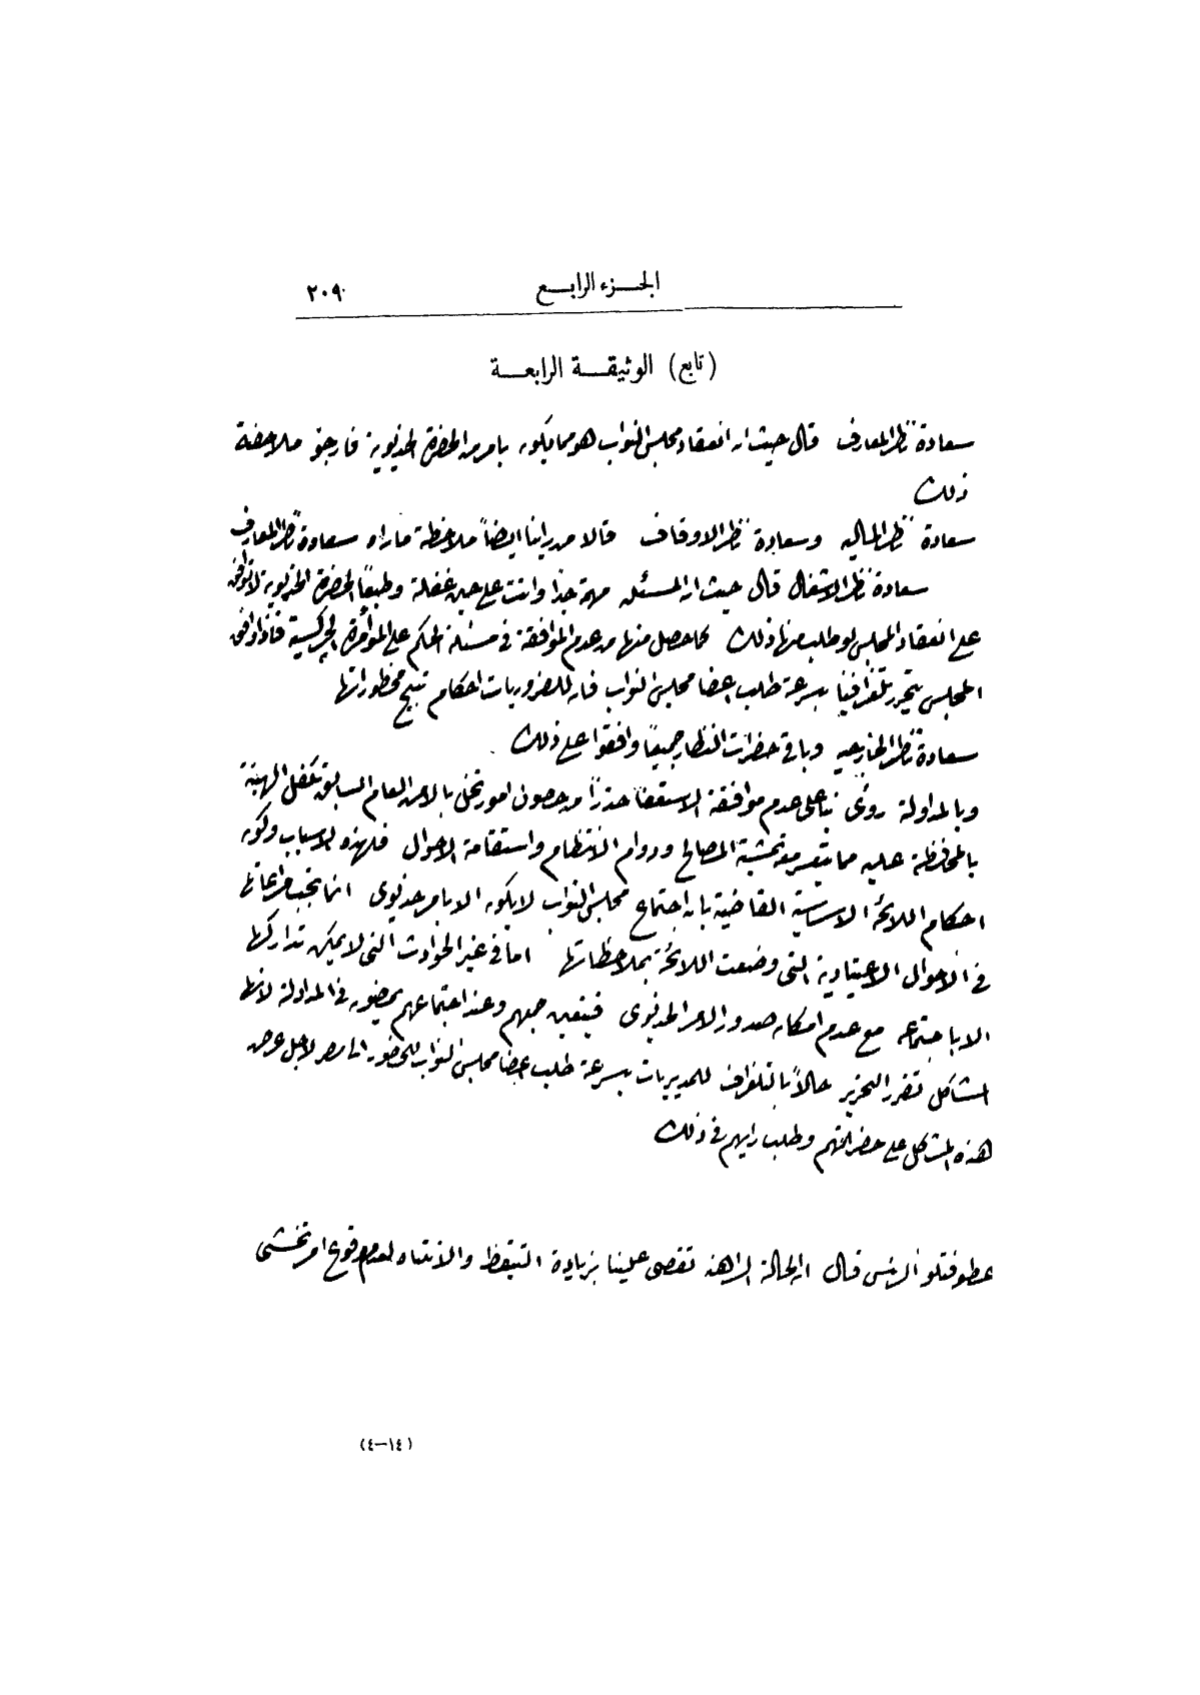 الجزء الرابع ٢٠٩
(تابع) الوثيقة الرابعة
سعادة ناظر المعارف قال حيث ان انعقاد مجلس النواب هو مما يكون بامر من الحضرة الخديوية فارجو ملاحظة
ذلك
سعادة ناظر الماليه وسعادة ناظر الاوقاف قالا من راينا ايضاً ملاحظة ماراه سعادة ناظر المعارف
سعادة ناظر الاشغال قال حيث ان المسئله مهمة جدا واتت على حين غفلة وطبعاً الحضرة الخديوية لا توافق
على انعقاد المجلس لو طلب منها ذلك كما حصل منها من عدم الموافقة في مسئلة الحكم على المؤامرة الجركسية فاذا وافق
المجلس يتحرر تلغرافياً بسرعة طلب اعضا مجلس النواب فان للضروريات احكام تبيح محظوراتها
سعادة ناظر الخارجيه وباقي حضرات النظار جميعاً وافقوا على ذلك
وبالمداولة روئى بنا على عدم موافقة الاستعفا حذراً من حصول امور تخل بالامن العام السابق تكفل الهيئة
بالمحافظة عليه مما يتعسر معه تمشية المصالح ودوام الانتظام واستقامة الاحوال فلهذه الاسباب ولكون
احكام اللائحة الاساسية القاضية بان اجتماع مجلس النواب لا يكون الا بامر خديوى انما يجب مراعاتها
في الاحوال الاعتيادية التى وضعت اللائحة بملاحظاتها اما في غير الحوادث التى لا يمكن تداركها
الا باجتماعه مع عدم امكان صدور الامر الخديوى فيتعين جمعهم وعند اجتماعهم بحضورهم في المداولة لانها
المشاكل تقرر التحرير حالاً بالتلغراف للمديريات بسرعة طلب اعضا مجلس النواب للحضور الى مصر لاجل عرض
هذه المشاكل على حضراتهم وطلب رايهم في ذلك
عطوفتلو الرئيس قال ان الحالة الراهنة تقضى علينا بزيادة التيقظ والانتباه لعدم وقوع امر تخشى
(١٤-٤)